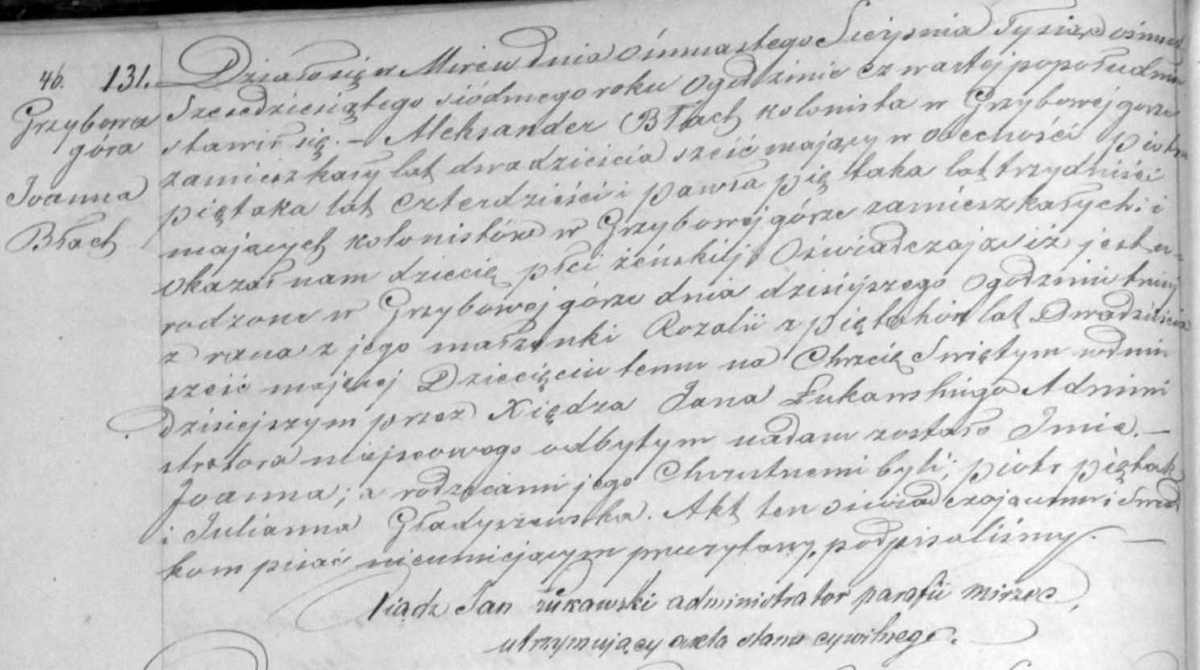 46. 131.
Grzybowa
góra
Joanna
Błach
Działo się w Mircu dnia ósmnastego Sierpnia Tysiąc ośmset
Szesdziesiątego siódmego roku o godzinie czwartej popołudniu
stawił się. — Aleksander Błach kolonista w Grzybowej gorze
zamieszkały lat dwadzieścia sześć mający w obecności Piotra
Piętaka lat czterdzieści i Pawła Piętaka lat trzydzieści
mających kolonistów w Grzybowej górze zamieszkałych i
okazał nam dziecię płci żeńskiej Oświadczając iż jest u-
rodzone w Grzybowej górze dnia dzisiejszego o godzinie
z rana z jego małżonki Rozalii z Piętaków lat Dwadzieścia
sześć mającej Dziecięciu temu na Chrzcie Świętym w dniu
dzisiejszym przez Xiędza Jana Łukawskiego Admini
stratora miejscowego odbytym nadane zostało Imie. —
Joanna; a rodzicami jego Chrzestnemi byli; Piotr Piętak
i Julianna Gładyszewska. Akt ten oświadczającemu i Świad
kom pisać nieumiejącym przeczytany, podpisaliśmy. —
Xiądz Jan Łukawski administrator parafii Mirzec,
utrzymujący akta stanu cywilnego.